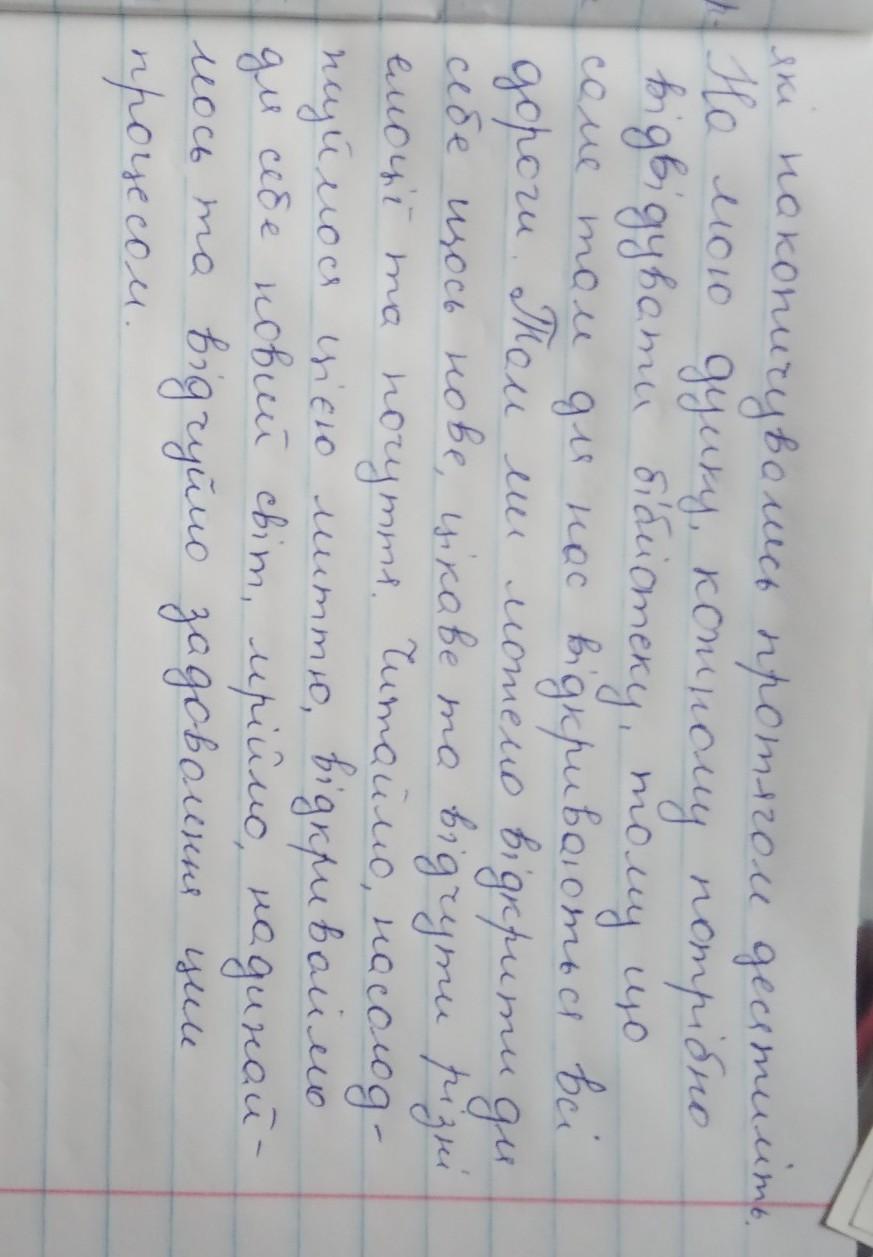 які накопичувались протягом десятиліть.
На мою думку, кожному потрібно
відвідувати бібліотеку, тому що
саме там для нас відкриваються всі
дороги. Там ми можемо відкрити для
себе щось нове, цікаве та відчути різні
емоції та почуття. Читаймо, насолод-
жуймося цією миттю, відкриваймо
для себе новий світ, мріймо, надихай-
мось та відчуймо задоволення цим
процесом.